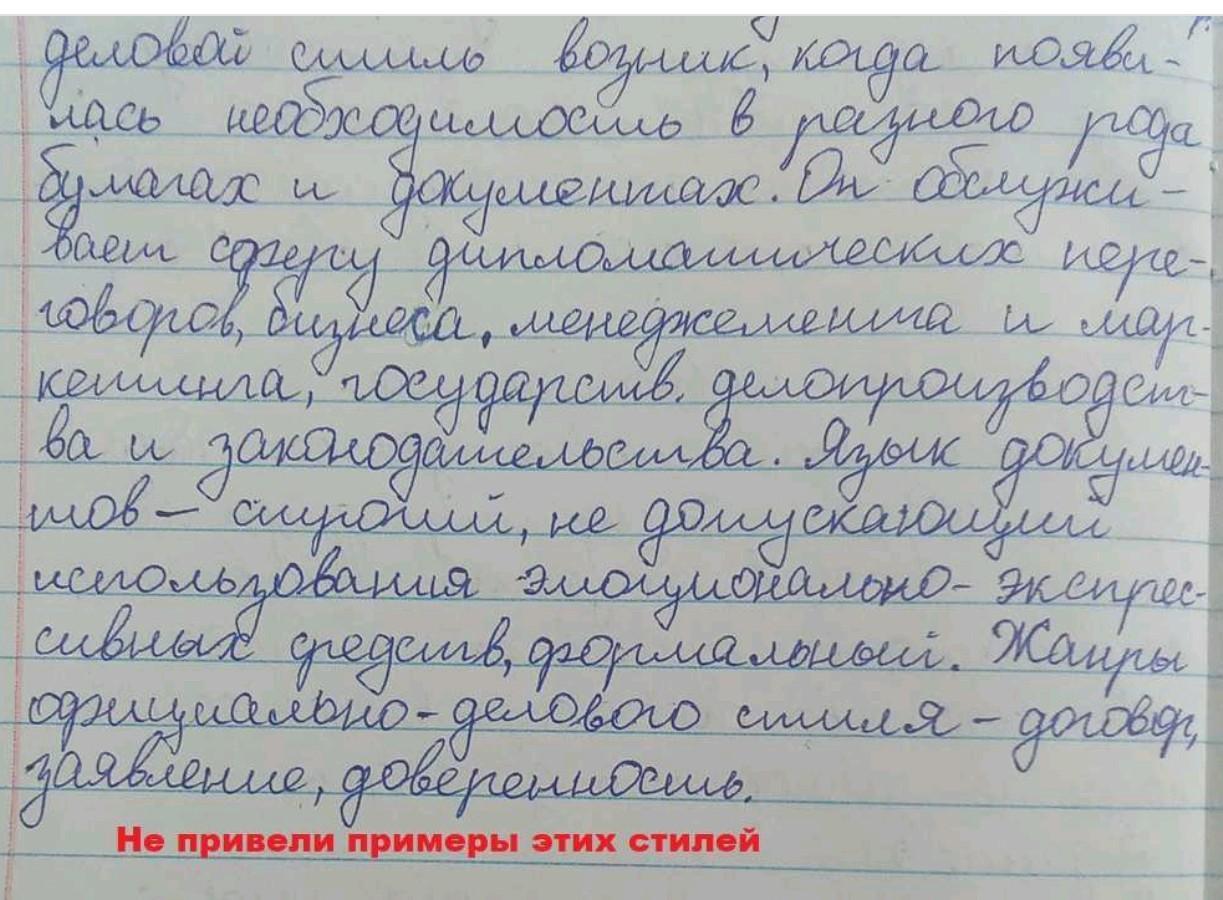 деловой стиль возник, когда появи-
лась необходимость в разного рода
бумагах и документах. Он обслужи-
вает сферу дипломатических пере-
говоров, бизнеса, менеджемента и мар-
кетинга, государств. делопроизводст-
ва и законодательства. Язык докумен-
тов – строгий, не допускающий
использования эмоционально-экспрес-
сивных средств, формальный. Жанры
официально-делового стиля – договор,
заявление, доверенность.
Не привели примеры этих стилей